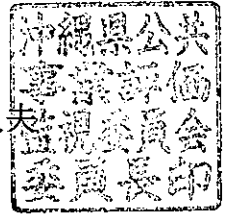 夫
沖縄県公共
事業評価
監視委員会
委員長印